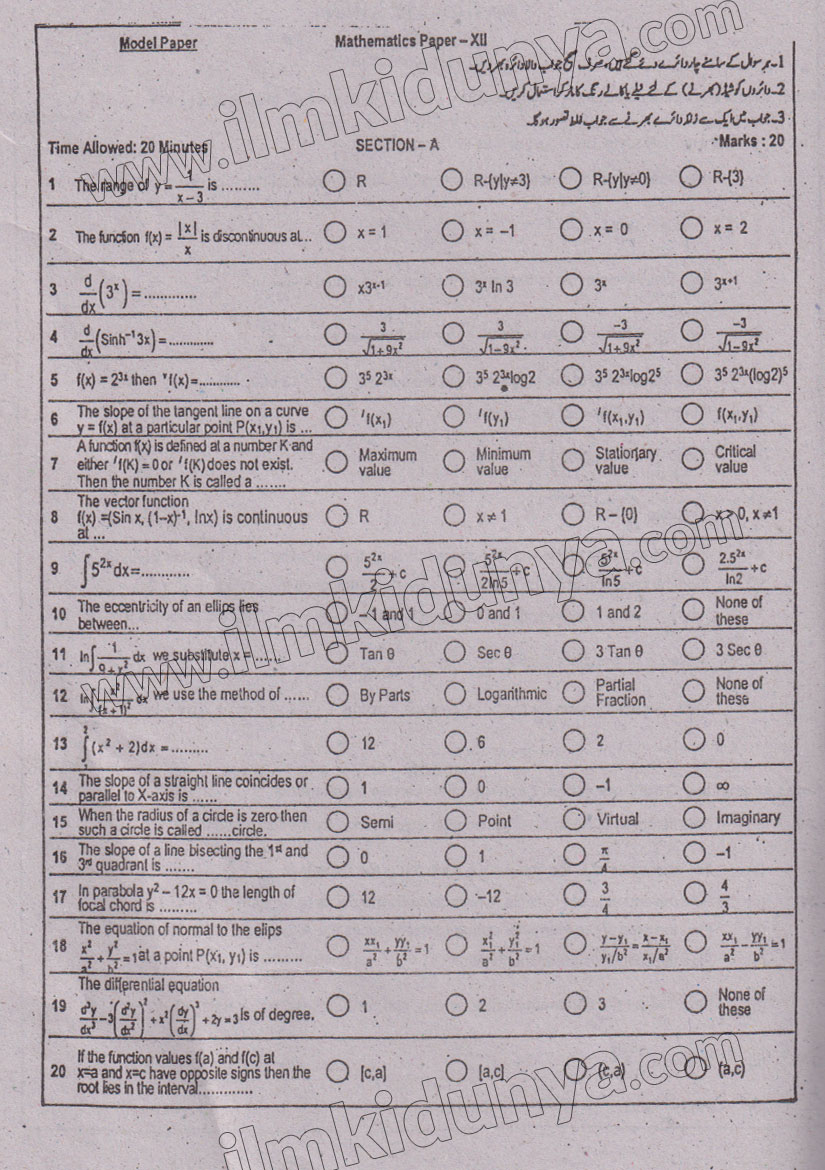 Model Paper
Mathematics Paper – XII
1۔ ہر سوال کے سامنے چار دائرے دئے گئے ہیں، صرف صحیح جواب والا دائرہ بھر دیں۔
2۔ دائروں کو شیڈ (بھرنے) کے لئے نیلے یا کالے رنگ کا مارکر استعمال کریں۔
3۔ جواب میں ایک سے زائد دائرے بھرنے سے جواب غلط تصور ہوگا۔
Time Allowed: 20 Minutes SECTION – A Marks : 20
1 The range of y = 1/(x – 3) is ......... R R-{y|y≠3} R-{y|y≠0} R-{3}
2 The function f(x) = |x|/x is discontinuous at... x = 1 x = –1 x = 0 x = 2
3 d/dx (3ˣ) = ............. x3ˣ⁻¹ 3ˣ ln 3 3ˣ 3ˣ⁺¹
4 d/dx (Sinh⁻¹3x) = ............ 3/√(1+9x²) 3/√(1–9x²) –3/√(1+9x²) –3/√(1–9x²)
5 f(x) = 2³ˣ then ᵛf(x)=........... 3⁵ 2³ˣ 3⁵ 2³ˣlog2 3⁵ 2³ˣlog2⁵ 3⁵ 2³ˣ(log2)⁵
6 The slope of the tangent line on a curve
y = f(x) at a particular point P(x₁,y₁) is ... ′f(x₁) ′f(y₁) ′f(x₁,y₁) f(x₁,y₁)
7 A function f(x) is defined at a number K and
either ′f(K) = 0 or ′f(K) does not exist.
Then the number K is called a ....... Maximum value Minimum value Stationary value Critical value
8 The vector function
f(x) =(Sin x, (1–x)⁻¹, lnx) is continuous
at ... R x ≠ 1 R – {0} x > 0, x ≠1
9 ∫5²ˣdx=........... 5²ˣ/2 + c 5²ˣ/2ln5 + c 5²ˣ/ln5 + c 2.5²ˣ/ln2 + c
10 The eccentricity of an ellips lies
between... –1 and 1 0 and 1 1 and 2 None of these
11 In∫ 1/(9 + x²) dx we substitute x = ...... Tan θ Sec θ 3 Tan θ 3 Sec θ
12 In∫ x²/(x + 1)² dx we use the method of ...... By Parts Logarithmic Partial Fraction None of these
13 ∫ (x² + 2)dx = ......... 12 6 2 0
14 The slope of a straight line coincides or
parallel to X-axis is ...... 1 0 –1 ∞
15 When the radius of a circle is zero then
such a circle is called ......circle. Semi Point Virtual Imaginary
16 The slope of a line bisecting the 1st and
3rd quadrant is ....... 0 1 π/4 –1
17 In parabola y² – 12x = 0 the length of
focal chord is ......... 12 –12 3/4 4/3
18 The equation of normal to the elips
x²/a² + y²/b² = 1 at a point P(x₁, y₁) is ......... xx₁/a² + yy₁/b² = 1 x₁²/a² + y₁²/b² = 1 (y – y₁)/(y₁/b²) = (x – x₁)/(x₁/a²) xx₁/a² – yy₁/b² = 1
19 The differential equation
d³y/dx³ – 3(d²y/dx²)² + x²(dy/dx)³ + 2y = 3 is of degree. 1 2 3 None of these
20 If the function values f(a) and f(c) at
x=a and x=c have opposite signs then the
root lies in the interval............. [c,a] [a,c] (c,a) (a,c)
www.ilmkidunya.com
www.ilmkidunya.com
ilmkidunya.com